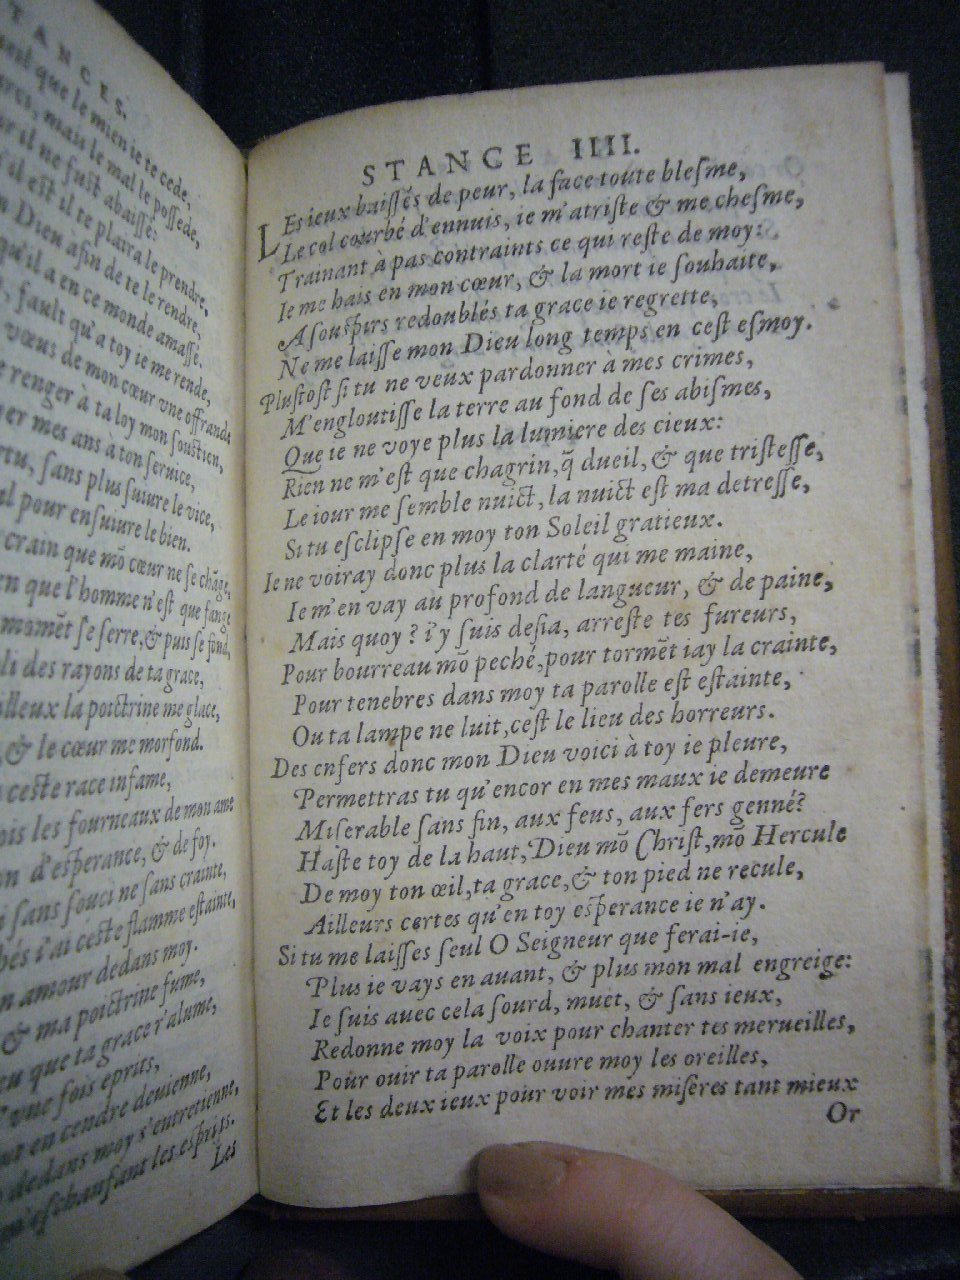 TANCES.
que le mien ie te cede,
mais le mal le possede,
il ne fust abaissé:
il est il te plaira le prendre,
Dieu afin de te le rendre,
qu'il a en ce monde amassé.
fault qu'a toy ie me rende,
vœus de mon cœur vne offrande
renger à ta loy mon soustien,
mes ans à ton seruice,
sans plus suiure le vice,
pour ensuiure le bien.
crain que mō cœur ne se chāge,
que l'homme n'est que fange
momēt se serre, & puis se fond,
des rayons de ta grace,
la poictrine me glace,
& le cœur me morfond.
ceste race infame,
les fourneaux de mon ame
d'esperance, & de foy.
sans souci ne sans crainte,
i'ai ceste flamme estainte,
amour dedans moy.
& ma poictrine fume,
que ta grace r'alume,
fois eprits,
en cendre deuienne,
dedans moy s'entretienne,
m'eschaufant les esprits.
Les
STANCE IIII.
LEs ieux baissés de peur, la face toute blesme,
Le col courbé d'ennuis, ie m'atriste & me chesme,
Trainant à pas contraints ce qui reste de moy:
Ie me hais en mon cœur, & la mort ie souhaite,
A souspirs redoublés ta grace ie regrette,
Ne me laisse mon Dieu long temps en cest esmoy.
Plustost si tu ne veux pardonner à mes crimes,
M'engloutisse la terre au fond de ses abismes,
Que ie ne voye plus la lumiere des cieux:
Rien ne m'est que chagrin, q̃ dueil, & que tristesse,
Le iour me semble nuict, la nuict est ma detresse,
Si tu esclipse en moy ton Soleil gratieux.
Ie ne voiray donc plus la clarté qui me maine,
Ie m'en vay au profond de langueur, & de paine,
Mais quoy? i'y suis desia, arreste tes fureurs,
Pour bourreau mō peché, pour tormēt iay la crainte,
Pour tenebres dans moy ta parolle est estainte,
Ou ta lampe ne luit, cest le lieu des horreurs.
Des enfers donc mon Dieu voici à toy ie pleure,
Permettras tu qu'encor en mes maux ie demeure
Miserable sans fin, aux feus, aux fers genné?
Haste toy de la haut, Dieu mō Christ, mō Hercule
De moy ton œil, ta grace, & ton pied ne recule,
Ailleurs certes qu'en toy esperance ie n'ay.
Si tu me laisses seul O Seigneur que ferai-ie,
Plus ie vays en auant, & plus mon mal engreige:
Ie suis auec cela sourd, muet, & sans ieux,
Redonne moy la voix pour chanter tes merueilles,
Pour ouir ta parolle ouure moy les oreilles,
Et les deux ieux pour voir mes misères tant mieux
Or